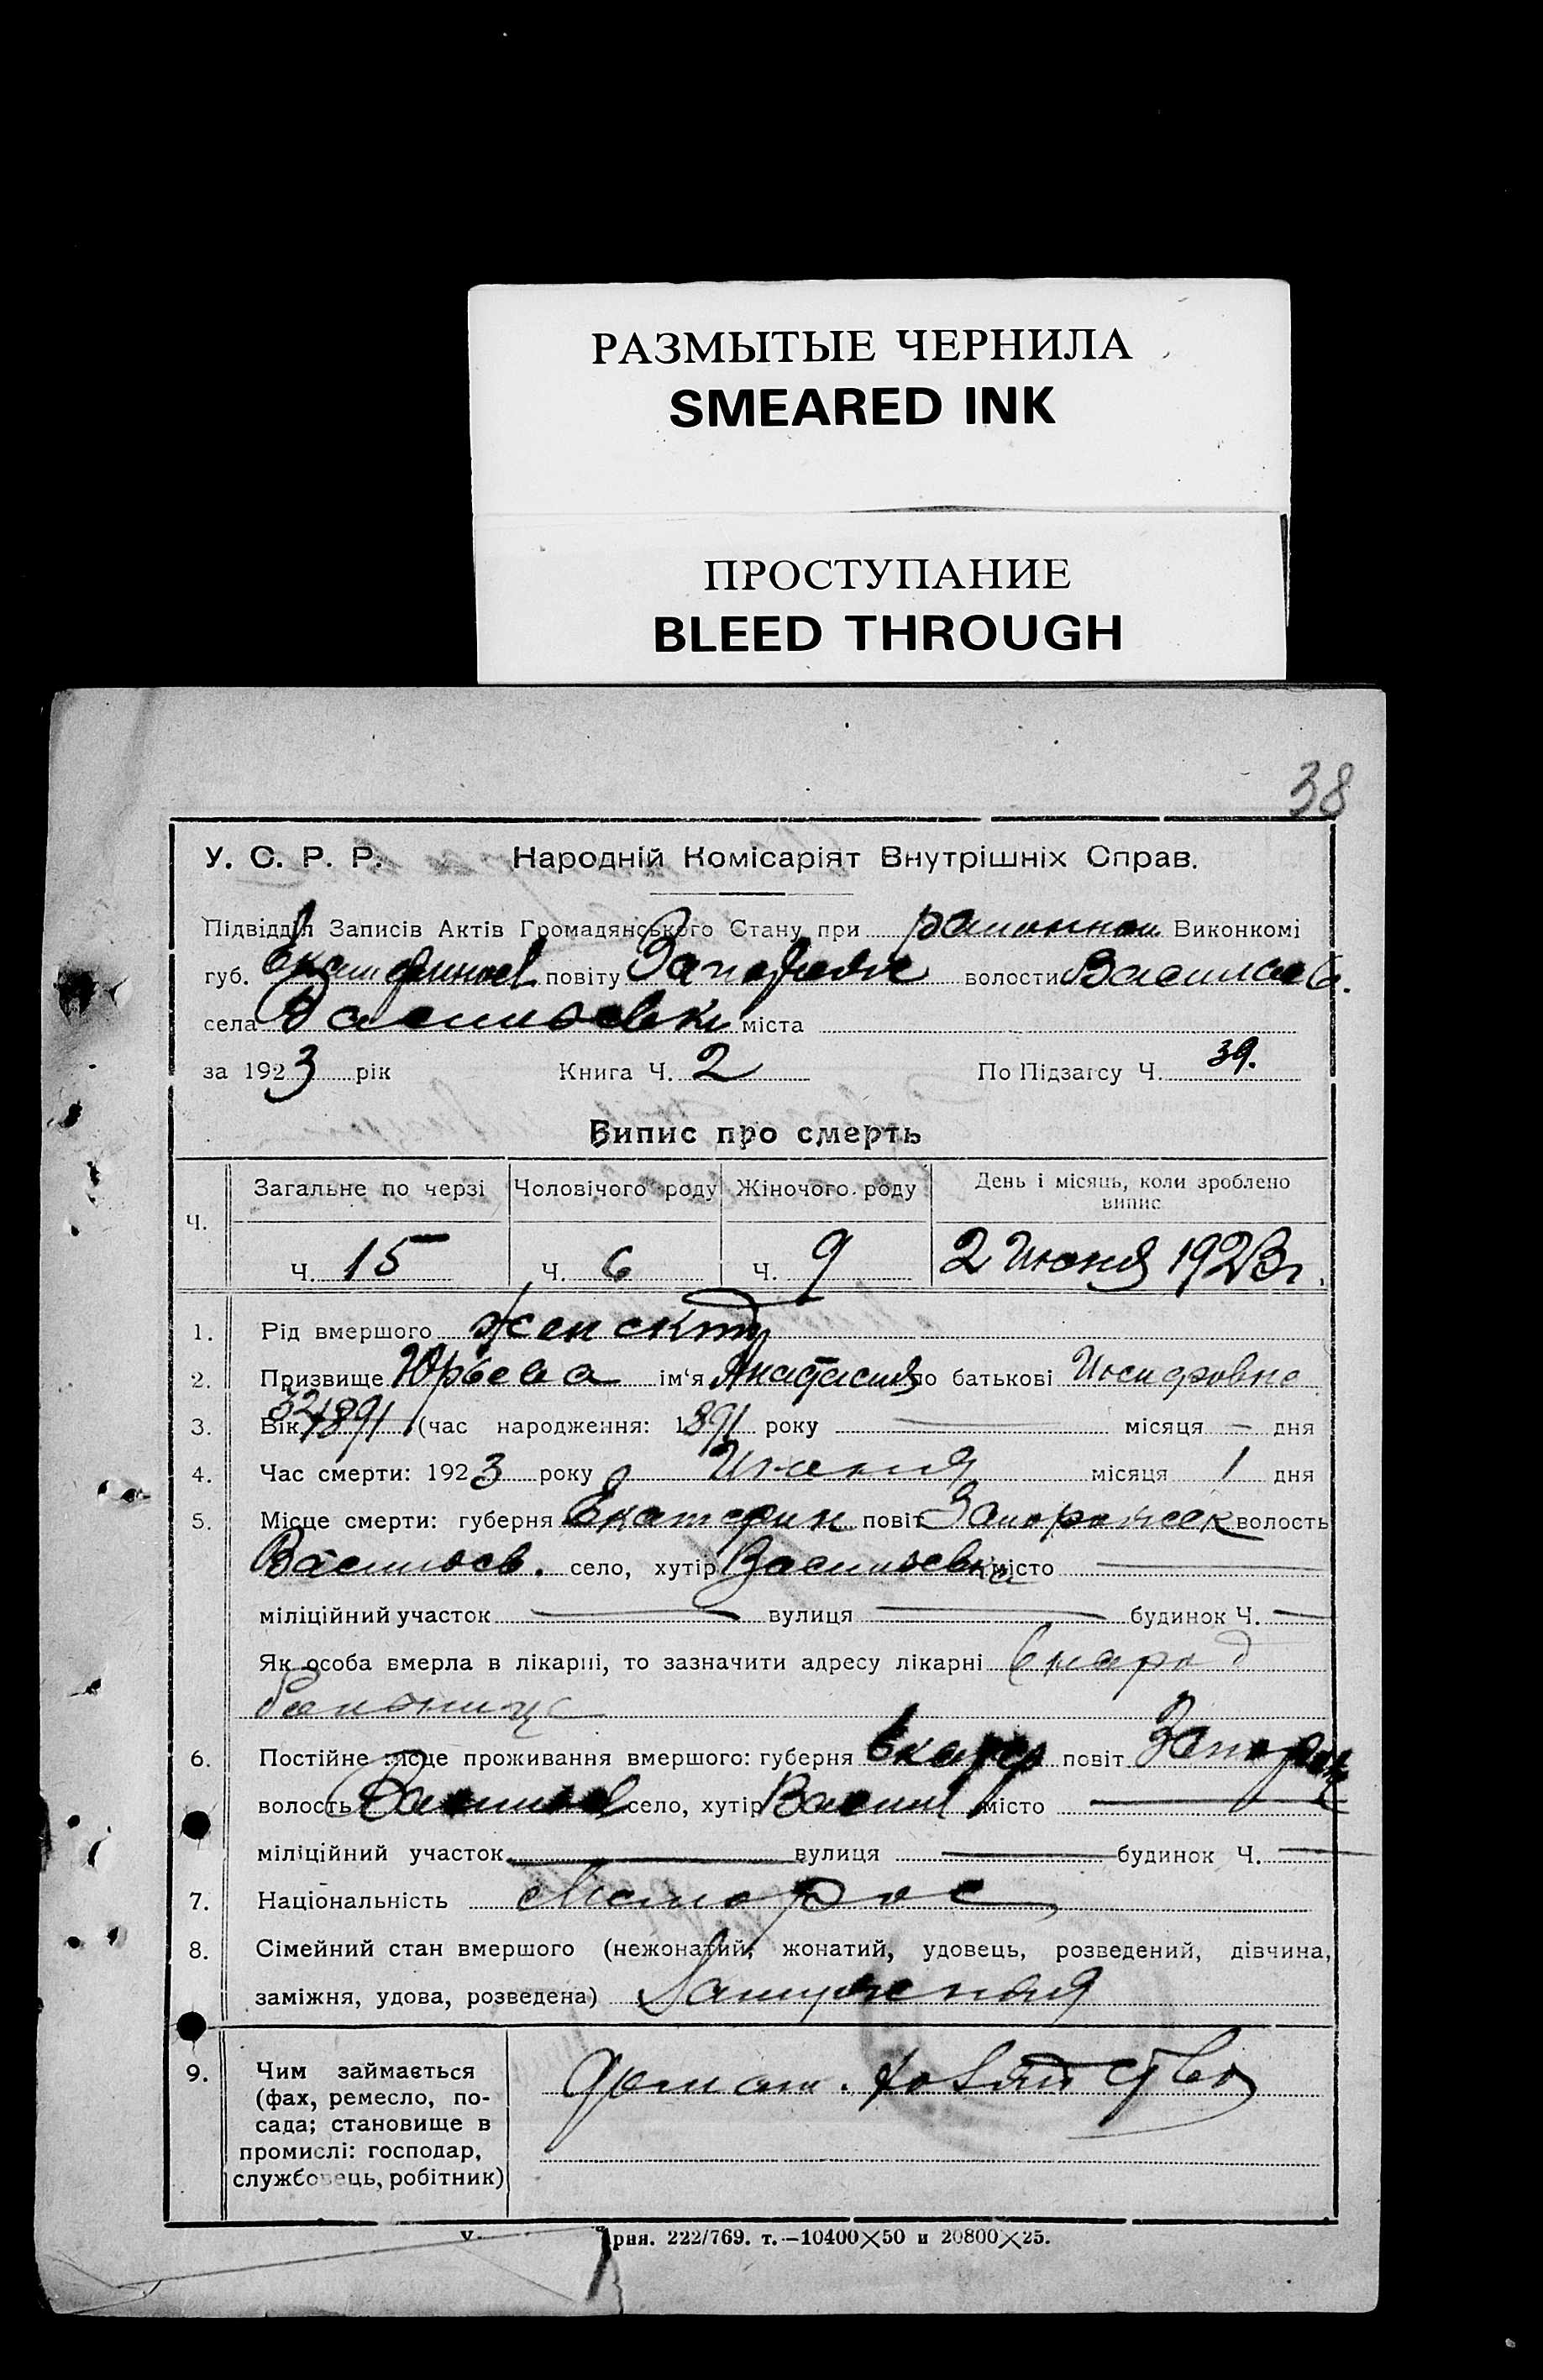 РАЗМЫТЫЕ ЧЕРНИЛА
SMEARED INK
ПРОСТУПАНИЕ
BLEED THROUGH
38
У. С. Р. Р. Народній Комісаріят Внутрішніх Справ.
Підвідділ Записів Актів Громадянського Стану при районном Виконкомі
губ. повіту волости Василь
села Васильевки міста
за 1923 рік Книга Ч. 2 По Підзагсу Ч. 39.
Випис про смерть
Ч. Загальне по черзі Чоловічого роду Жіночого роду День і місяць, коли зроблено
випис
Ч. 15 Ч. 6 Ч. 9 2 Июня 1923 г.
1. Рід вмершого женский
2. Призвище Юрьева ім‘я Анастасия по батькові Иосифовна
3. Вік 32 1891 (час народження: 1891 року — місяця — дня
4. Час смерти: 1923 року Июня місяця 1 дня
5. Місце смерти: губерня Екатерин повіт Запорожск волость
Васильев. село, хутір Васильевка місто —
міліційний участок — вулиця — будинок Ч. —
Як особа вмерла в лікарні, то зазначити адресу лікарні
больница
6. Постійне місце проживання вмершого: губерня Екатер повіт Запорож
волость Васильев село, хутір Васил місто —
міліційний участок — вулиця — будинок Ч. —
7. Національність Малорос
8. Сімейний стан вмершого (нежонатий, жонатий, удовець, розведений, дівчина,
заміжня, удова, розведена) Замужняя
9. Чим займається
(фах, ремесло, по-
сада; становище в
промислі: господар,
службовець, робітник)
домаш. хозяйство
рня. 222/769. т.—10400×50 и 20800×25.